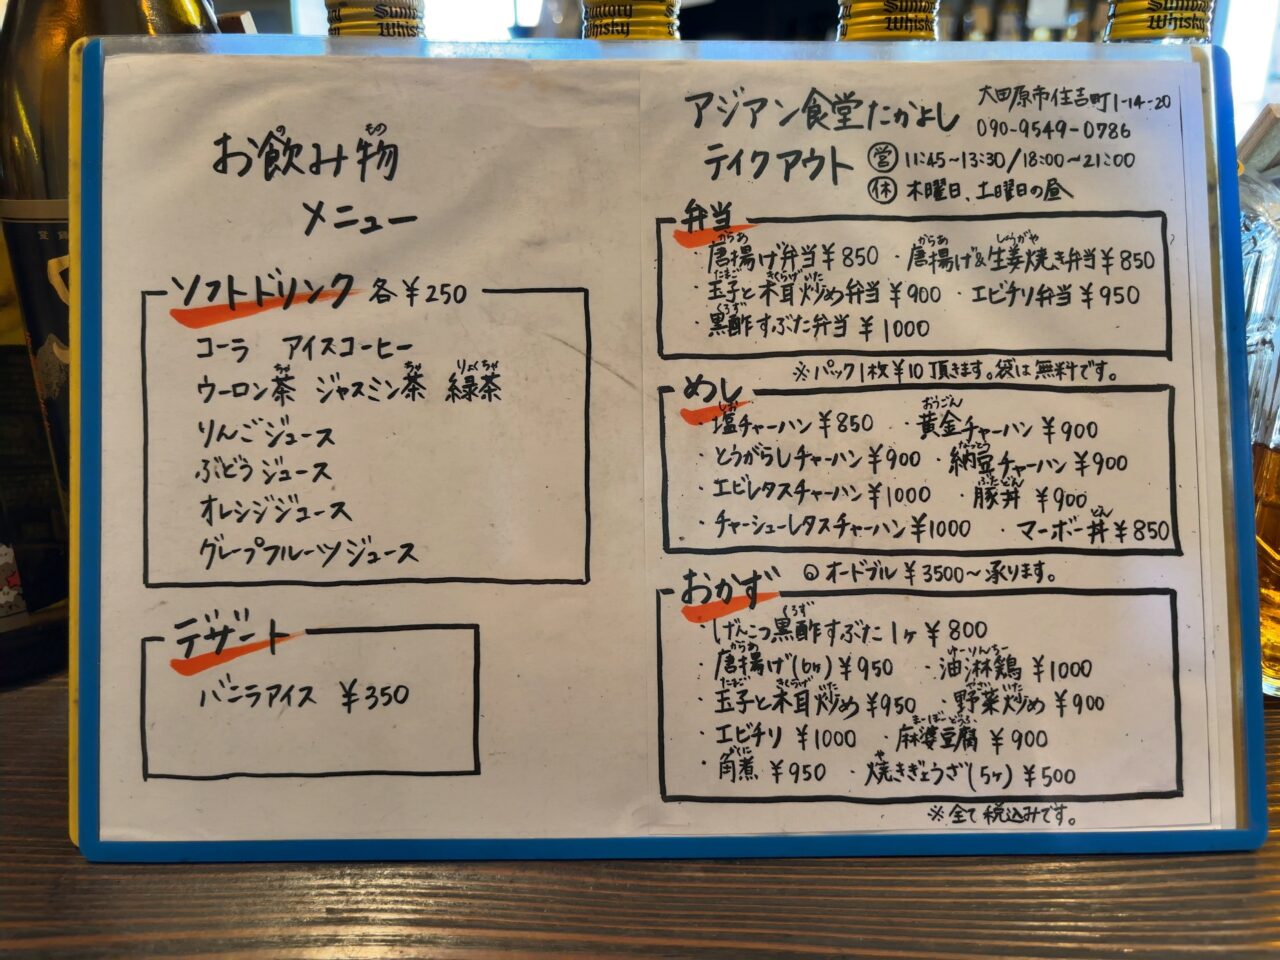 Suntory Whisky
Suntory Whisky
Suntory Whisky
Suntory Whisky
お飲み物
メニュー
ソフトドリンク 各¥250
コーラ アイスコーヒー
ウーロン茶 ジャスミン茶 緑茶
りんごジュース
ぶどうジュース
オレンジジュース
グレープフルーツジュース
デザート
バニラアイス ¥350
アジアン食堂たかよし 大田原市住吉町1-14-20
090-9549-0786
テイクアウト 営 11:45~13:30/18:00~21:00
休 木曜日、土曜日の昼
弁当
・唐揚げ弁当¥850 ・唐揚げ&生姜焼き弁当¥850
・玉子と木耳炒め弁当¥900 ・エビチリ弁当¥950
・黒酢すぶた弁当¥1000
※パック1枚¥10頂きます。袋は無料です。
めし
・塩チャーハン¥850 ・黄金チャーハン¥900
・とうがらしチャーハン¥900 ・納豆チャーハン¥900
・エビレタスチャーハン¥1000 ・豚丼 ¥900
・チャーシューレタスチャーハン¥1000 ・マーボー丼¥850
◎オードブル¥3500~承ります。
おかず
・げんこつ黒酢すぶた1ヶ¥800
・唐揚げ(6ヶ)¥950 ・油淋鶏¥1000
・玉子と木耳炒め¥950 ・野菜炒め¥900
・エビチリ¥1000 ・麻婆豆腐¥900
・角煮¥950 ・焼きぎょうざ(5ヶ)¥500
※全て税込みです。